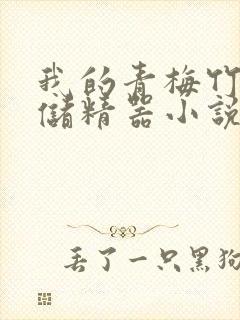 我的青梅竹
储精器小說
丢了一只黑狗